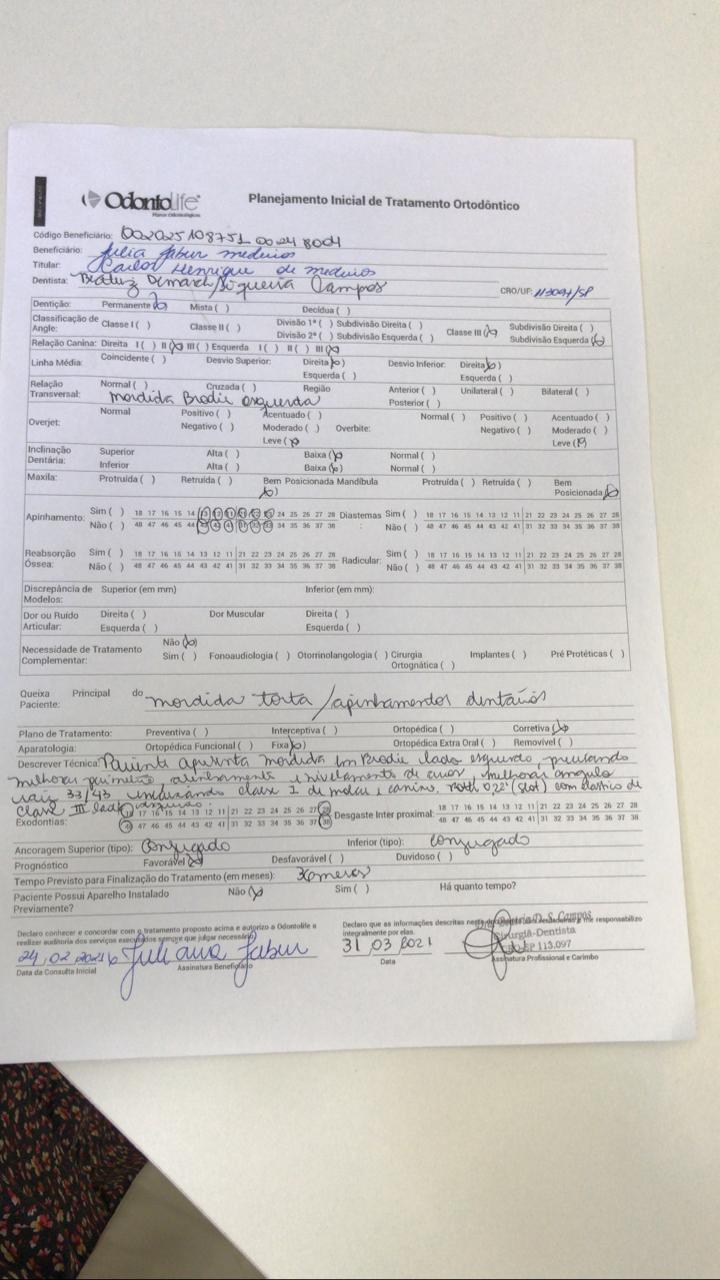 OdontoLife
Planos Odontológicos
Planejamento Inicial de Tratamento Ortodôntico
Código Beneficiário: 002025108751 0024 8004
Beneficiário: Julia Jabur medeiros
Titular: Carlos Henrique de medeiros
Dentista: Beatriz Demarchi Siqueira Campos CRO/UF: 113097/SP
Dentição: Permanente (x) Mista ( ) Decídua ( )
Classificação de Angle: Classe I ( ) Classe II ( ) Divisão 1ª ( ) Subdivisão Direita ( ) Classe III (x) Subdivisão Direita ( )
Divisão 2ª ( ) Subdivisão Esquerda ( ) Subdivisão Esquerda (x)
Relação Canina: Direita I ( ) II (x) III ( ) Esquerda I ( ) II ( ) III (x)
Linha Média: Coincidente ( ) Desvio Superior: Direita (x) Desvio Inferior: Direita (x)
Esquerda ( ) Esquerda ( )
Relação Transversal: Normal ( ) Cruzada ( ) Região Anterior ( ) Unilateral ( ) Bilateral ( )
mordida Brodie esquerda Posterior ( )
Overjet: Normal Positivo ( ) Acentuado ( ) Overbite: Normal ( ) Positivo ( ) Acentuado ( )
Negativo ( ) Moderado ( ) Negativo ( ) Moderado ( )
Leve (x) Leve (x)
Inclinação Dentária: Superior Alta ( ) Baixa (x) Normal ( )
Inferior Alta ( ) Baixa (x) Normal ( )
Maxila: Protruída ( ) Retruída ( ) Bem Posicionada (x) Mandíbula Protruída ( ) Retruída ( ) Bem Posicionada (x)
Apinhamento: Sim ( ) 18 17 16 15 14 13 12 11 21 22 23 24 25 26 27 28 Diastemas Sim ( ) 18 17 16 15 14 13 12 11 21 22 23 24 25 26 27 28
Não ( ) 48 47 46 45 44 43 42 41 31 32 33 34 35 36 37 38 Não ( ) 48 47 46 45 44 43 42 41 31 32 33 34 35 36 37 38
Reabsorção Óssea: Sim ( ) 18 17 16 15 14 13 12 11 21 22 23 24 25 26 27 28 Radicular: Sim ( ) 18 17 16 15 14 13 12 11 21 22 23 24 25 26 27 28
Não ( ) 48 47 46 45 44 43 42 41 31 32 33 34 35 36 37 38 Não ( ) 48 47 46 45 44 43 42 41 31 32 33 34 35 36 37 38
Discrepância de Modelos: Superior (em mm) Inferior (em mm):
Dor ou Ruído Articular: Direita ( ) Dor Muscular Direita ( )
Esquerda ( ) Esquerda ( )
Necessidade de Tratamento Complementar: Não (x)
Sim ( ) Fonoaudiologia ( ) Otorrinolangologia ( ) Cirurgia Ortognática ( ) Implantes ( ) Pré Protéticas ( )
Queixa Principal do Paciente: mordida torta /apinhamentos dentários
Plano de Tratamento: Preventiva ( ) Interceptiva ( ) Ortopédica ( ) Corretiva (x)
Aparatologia: Ortopédica Funcional ( ) Fixa (x) Ortopédica Extra Oral ( ) Removível ( )
Descrever Técnica: Paciente apresenta mordida em Brodie lado esquerdo, precisando
melhorar perímetro, alinhamento e nivelamento de arcos, melhorar angulo
raiz 33/43 finalizando classe I de molar e canino. Roth 022" (slot) com elastico de
Classe III lado esquerdo.
Exodontias: 18 17 16 15 14 13 12 11 21 22 23 24 25 26 27 28 Desgaste Inter proximal: 18 17 16 15 14 13 12 11 21 22 23 24 25 26 27 28
48 47 46 45 44 43 42 41 31 32 33 34 35 36 37 38 48 47 46 45 44 43 42 41 31 32 33 34 35 36 37 38
Ancoragem Superior (tipo): Conjugado Inferior (tipo): conjugado
Prognóstico Favorável (x) Desfavorável ( ) Duvidoso ( )
Tempo Previsto para Finalização do Tratamento (em meses): 36 meses
Paciente Possui Aparelho Instalado Previamente? Não (x) Sim ( ) Há quanto tempo?
Declaro conhecer e concordar com o tratamento proposto acima e autorizo a Odontolife a realizar auditoria dos serviços executados sempre que julgar necessário.
Declaro que as informações descritas me responsabilizo integralmente por elas.
24/02/2021 Juliana Jabur
Data da Consulta Inicial Assinatura Beneficiário
31/03/2021
Data
Beatriz D. S. Campos
Cirurgiã-Dentista
SP 113.097
Assinatura Profissional e Carimbo